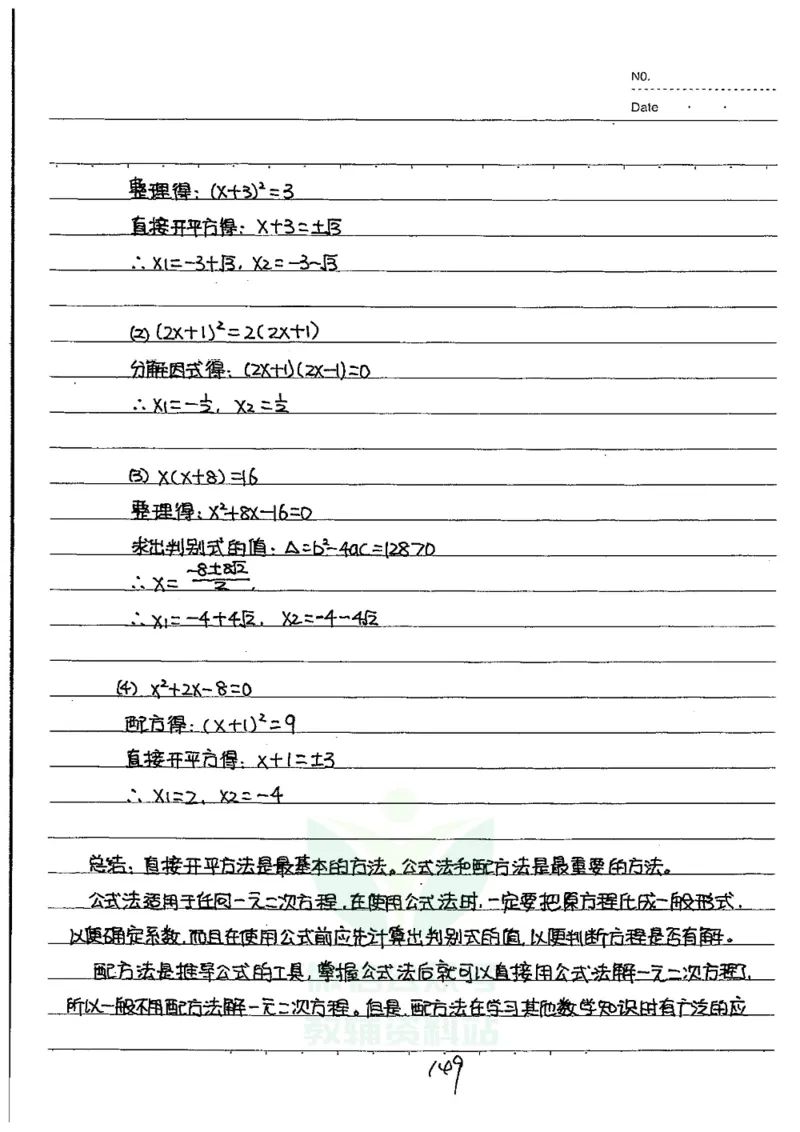 NO.
Date
整理得：(x+3)²=3
直接开平方得：x+3=±√3
∴ x1=-3+√3，x2=-3-√3
(2) (2x+1)²=2(2x+1)
分解因式得：(2x+1)(2x-1)=0
∴ x1=-1/2，x2=1/2
(3) x(x+8)=16
整理得：x²+8x-16=0
求出判别式的值：Δ=b²-4ac=128>0
∴ x= (-8±8√2)/2，
∴ x1=-4+4√2，x2=-4-4√2
(4) x²+2x-8=0
配方得：(x+1)²=9
直接开平方得：x+1=±3
∴ x1=2，x2=-4
总结：直接开平方法是最基本的方法。公式法和配方法是最重要的方法。
公式法适用于任何一元二次方程，在使用公式法时，一定要把原方程化成一般形式，
以便确定系数，而且在使用公式前应先计算出判别式的值，以便判断方程是否有解。
配方法是推导公式的工具，掌握公式法后就可以直接用公式法解一元二次方程了，
所以一般不用配方法解一元二次方程。但是，配方法在学习其他数学知识时有广泛的应
微信公众号
教辅资料站
149